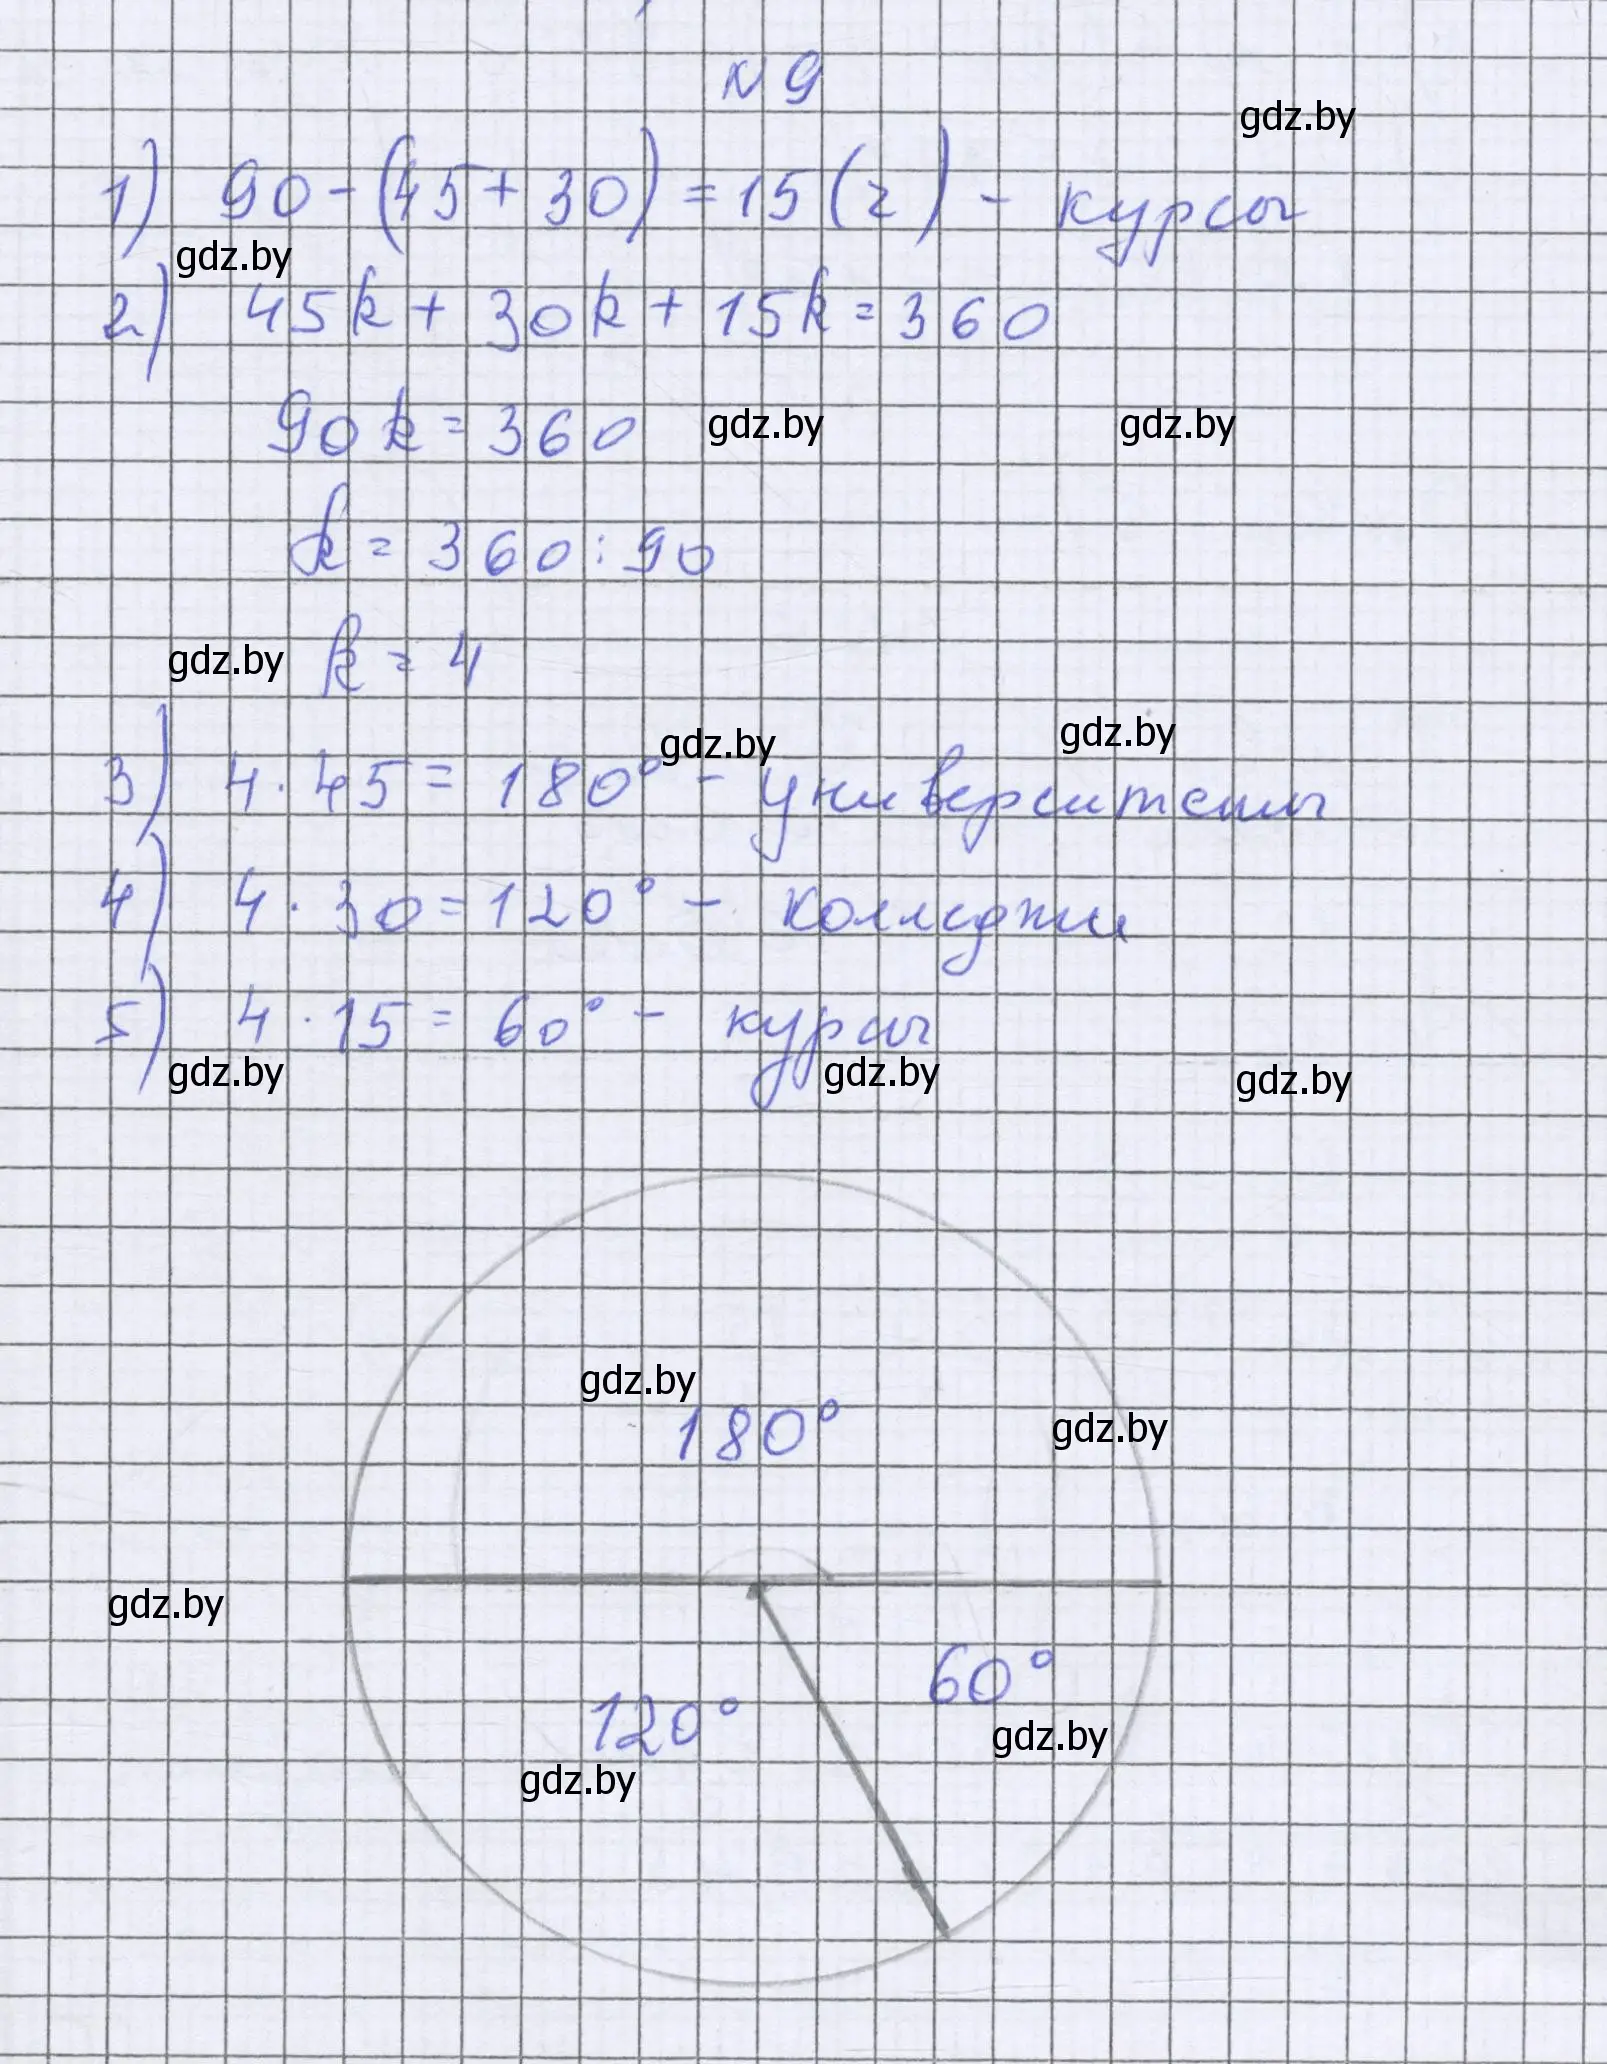 № 9
gdz.by
1) 90 - (45 + 30) = 15 (ч) - курсы
gdz.by
2) 45k + 30k + 15k = 360
90k = 360
gdz.by gdz.by
k = 360 : 90
gdz.by k = 4
gdz.by gdz.by
3) 4 · 45 = 180° - университеты
4) 4 · 30 = 120° - колледжи
5) 4 · 15 = 60° - курсы
gdz.by gdz.by gdz.by
gdz.by
180°
gdz.by
gdz.by
60°
120°
gdz.by
gdz.by